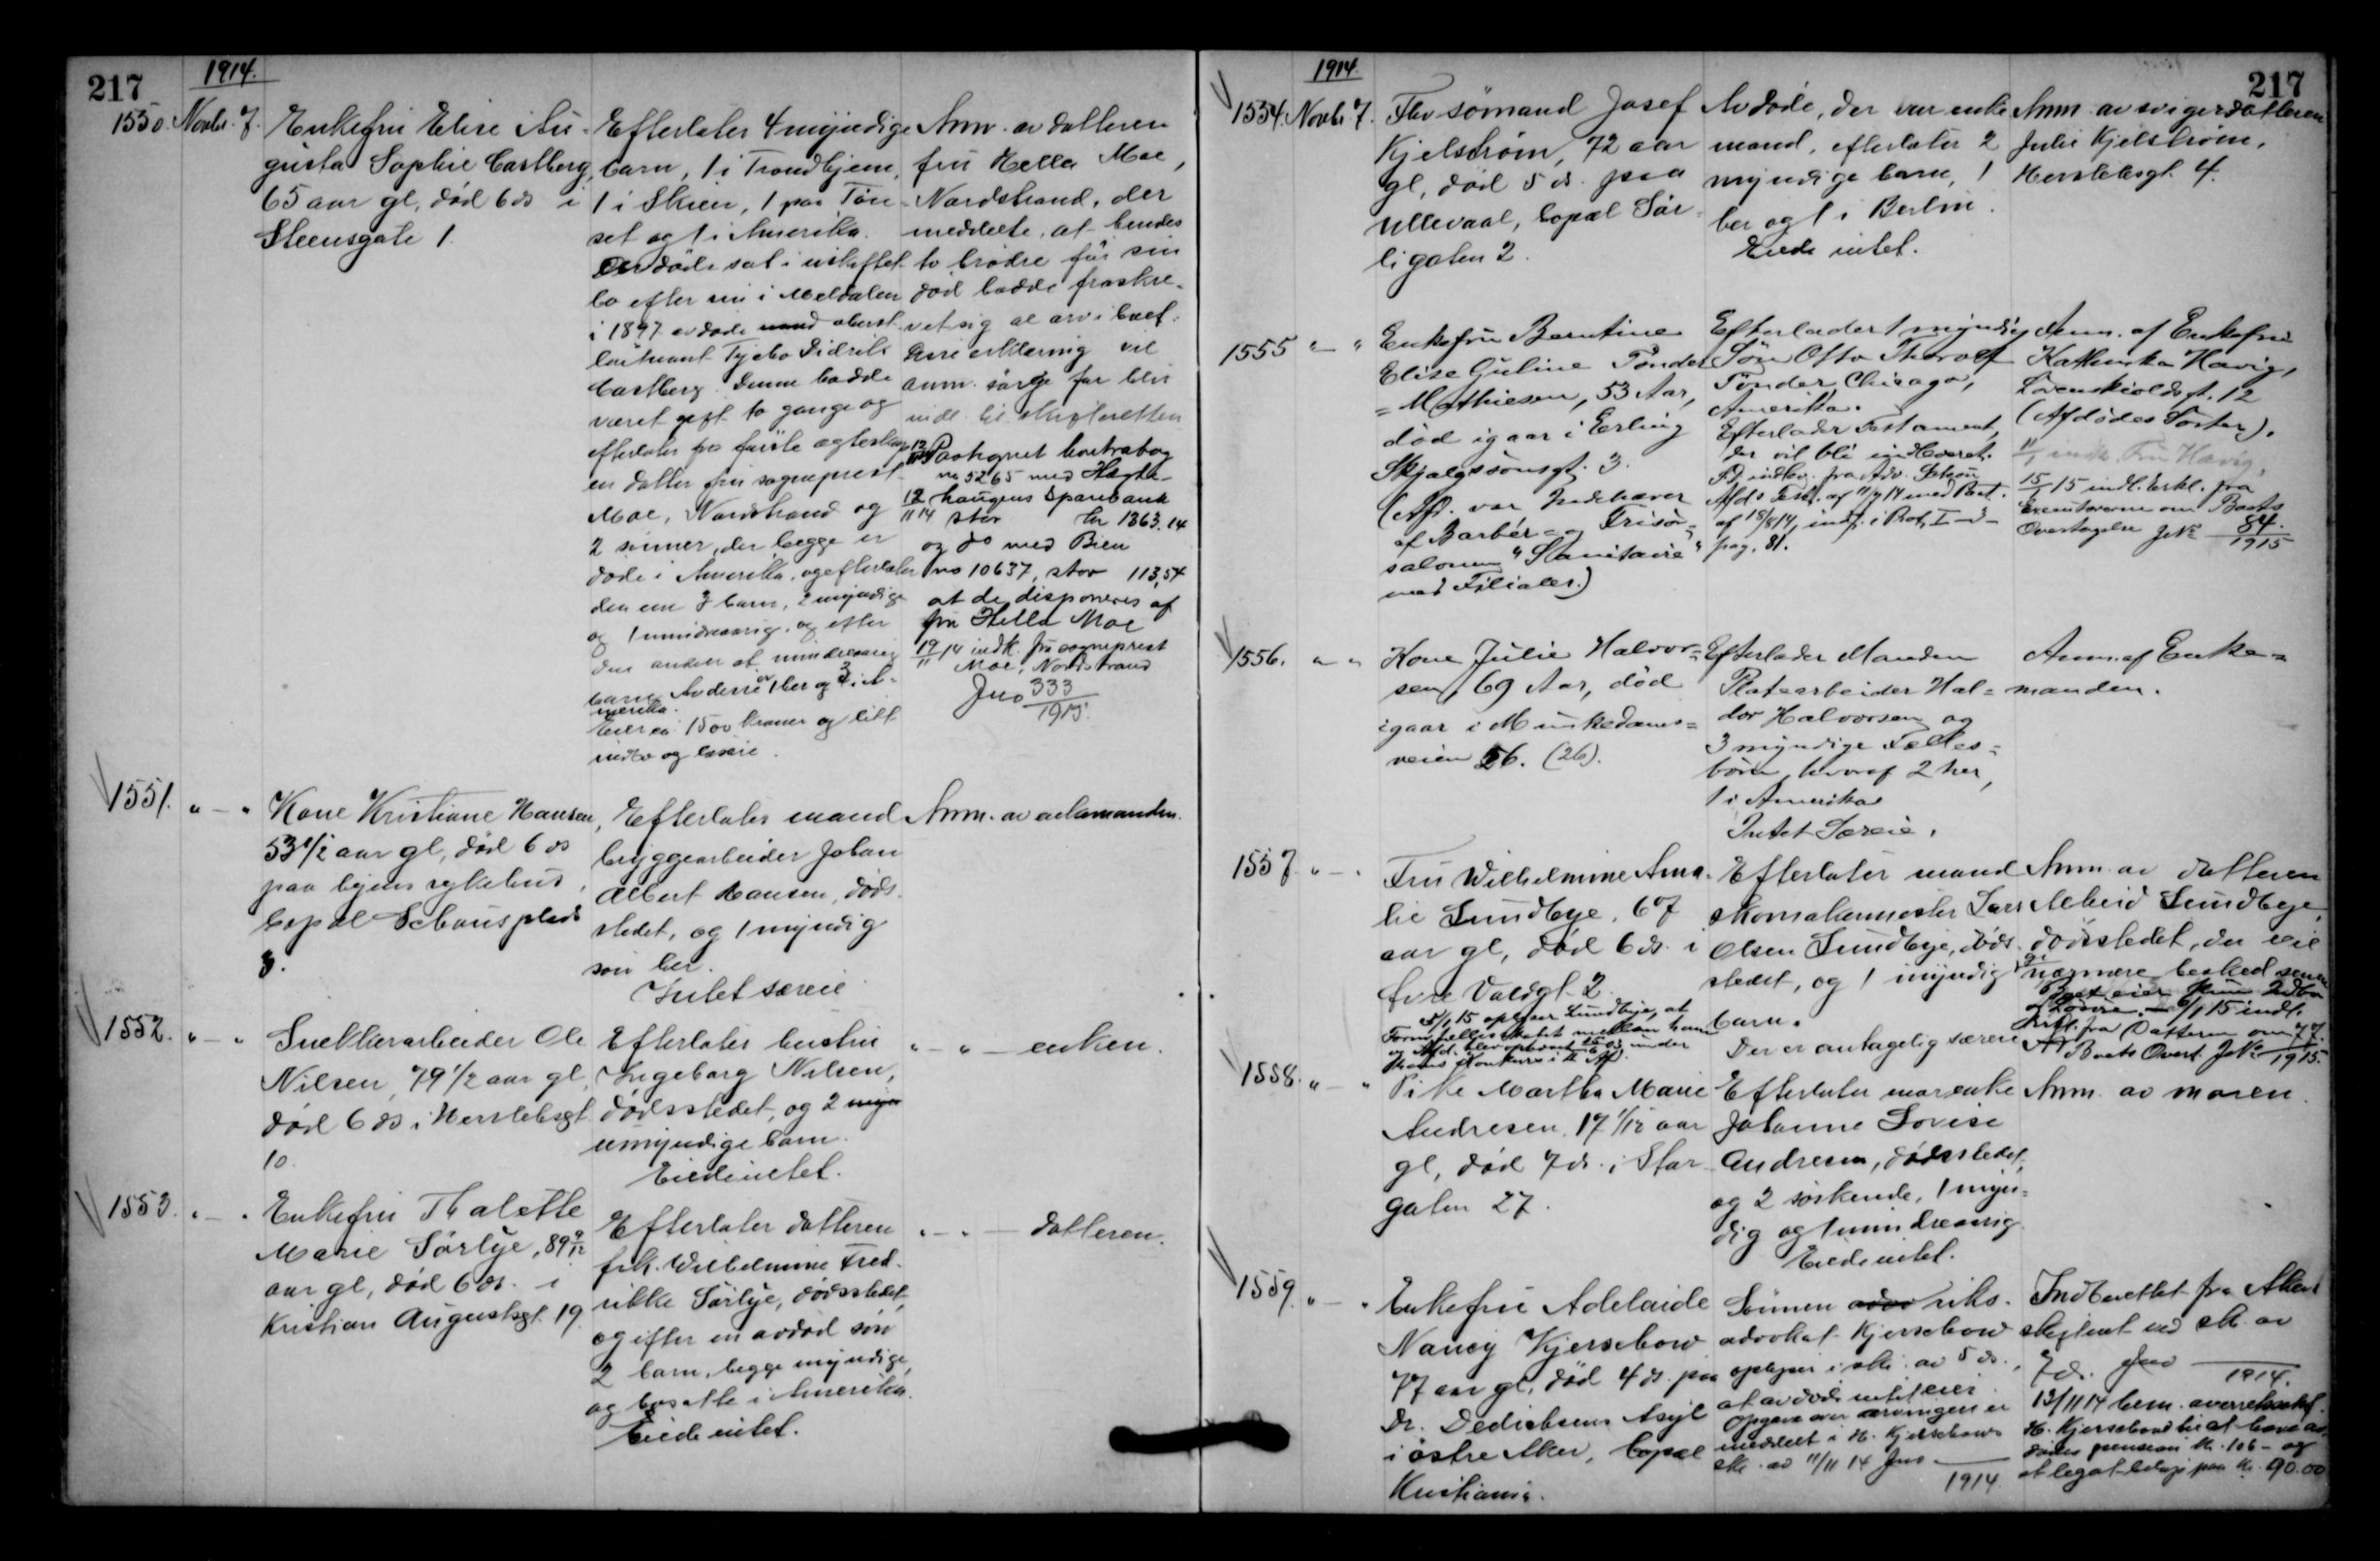 217
1914.
1550. Novbr. 7.
Enkefru Elise Au-
gusta Sophie Castberg,
65 aar gl, død 6 ds i
Steensgate 1.
Efterlater 4 myndige
barn, 1 i Trondhjem,
1 i Skien, 1 paa Tøn-
set og 1 i Amerika.
døde sat i uskiftet
bo efter sin i Meldalen
i 1897 avdøde mand oberst-
løitnant Tycho Didrik
Castberg. Denne hadde
været gift to gange og
efterlater fra første egteskap
en datter fru sogneprest
Moe, Nordstrand og
2 sønner, der begge er
døde i Amerika, og efterlater
den ene 3 barn, 2 myndige
og 1 mindreaarig, og efter
den anden et mindreaarig
barn. Av disse er 1 her og 3 i A-
merika.
Eier ca 1500 kroner og litt
indbo og løsøre.
Anm. av datteren
fru Hella Moe,
Nordstrand, der
meddelte, at hendes
to brødre før sin
død hadde fraskre-
vet sig al arv i boet.
Disse erklæring vil
anm. sørge for blir
indl. til skifteretten
Paategnet kontrabog
no 5265 med Hegde-
haugens Sparebank
12/11 14 stor kr 1363.14
og do med Bien
no 10637, stor 113,54
at de disponeres af
fru Hella Moe
19/11 14 indk. fru sogneprest
Moe, Nordstrand
Jno 333/1915.
1551. " — "
Kone Kristiane Hansen,
53 1/2 aar gl, død 6 ds
paa byens sykehus,
bopæl Schous plads
3.
Efterlater mand
bryggearbeider Johan
Albert Hansen, døds-
stedet, og 1 myndig
søn her.
Intet særeie
Anm. av enkemanden.
1552. " — "
Snekkerarbeider Ole
Nilsen, 79 1/2 aar gl,
død 6 ds i Herslebsgt
10.
Efterlater hustru
Ingeborg Nilsen,
dødsstedet, og 2
umyndige barn.
Eiede intet.
" — " — enken.
1553. " — "
Enkefru Thalette
Marie Sørlye, 89 9/12
aar gl, død 6 ds. i
Kristian Augustsgt. 19
Efterlater datteren
frk. Wilhelmine Fred-
rikke Sørlye, dødsstedet,
og efter en avdød søn
2 barn, begge myndige,
og bosatte i Amerika.
Eiede intet.
" — " — datteren.
217
1914.
1554. Novbr. 7.
Fhv sømand Josef
Kjelstrøm, 72 aar
gl, død 5 ds. paa
Ullevaal, bopæl Sør-
ligaten 2.
Avdøde, der var enke
mand, efterlater 2
myndige barn, 1
her og 1 i Berlin.
Eiede intet.
Anm. av svigerdatteren
Julie Kjelstrøm,
Herslebsgt. 4.
1555 " — "
Enkefru Berntine
Elise Guline Tønder
= Mathiesen, 53 Aar,
død igaar i Erling
Skjalgssønsgt. 3.
(Afd. var Indehaver
af Barber- og Frisør-
salonen "Sanitaire"
med Filialer.)
Efterlader 1 myndig
Søn Otto Tharolf
Tønder, Chicago,
Amerika.
Efterlader Testament,
der vil bli indleveret.
af 18/8/14, indf. i Prot. I
pag. 81.
Anm. af Enkefru
Kathinka Høvig,
Løvenskioldsgt. 12
(Afdødes Søster).
indk. Fru Høvig,
15/1 15 indl. Erkl. fra
Executorerne om Boets
Overtagelse JNo 84./1915
1556. " "
Kone Julie Halvor-
sen, 69 Aar, død
igaar i Munkedams-
veien 56. (26).
Efterlader Manden
Platearbeider Hal-
dor Halvorsen og
3 myndige Fælles-
børn, hvoraf 2 her,
1 i Amerika
Intet Særeie.
Anm. af Enke-
manden.
1557. " — "
Fru Wilhelmine Ama-
lie Lundbye, 67
aar gl, død 6 ds. i
Øvre Voldgt. 2
5/1 15 oplyser Lundbye, at
Formuesfællesskabet mellem ham
og Afd. blev ophævet under
hans Konkurs
Efterlater mand
skomakermester Lars
Olsen Lundbye, døds-
stedet, og 1 myndig
barn.
Der er antagelig særeie
Anm. av datteren
Alheid Lundbye,
dødsstedet, der vil
gi nærmere besked senere
6/1 15 indl.
fra Datteren om
Boets Overt. JNo 77./1915.
1558. " — "
Pike Martha Marie
Andresen, 17 1/12 aar
gl, død 7 ds. i Stor-
gaten 27.
Efterlater mor enke
Johanne Lovise
Andresen, dødsstedet,
og 2 søskende, 1 myn-
dig og 1 mindreaarig.
Eiede intet.
Anm. av moren.
1559. " — "
Enkefru Adelaide
Nancy Kjerschow
77 aar gl, død 4 ds. paa
Dr. Dedichens Asyl
i østre Aker, bopæl
Kristiania.
Sønnen riks-
advokat Kjerschow
oplyser i skr. av 5 ds.,
at avdøde intet eier.
Opgave over arvingene er
meddelt i H. Kjerschows
skr. av 11/11 14 Jno /1914
Indberettet fra Aker
skifteret ved skr. av
7 ds. Jno /1914.
13/11 14 bem. overretssakf.
H. Kjerschow til at hæve av-
dødes pension kr. 106 - og
et legat paa kr. 90.00